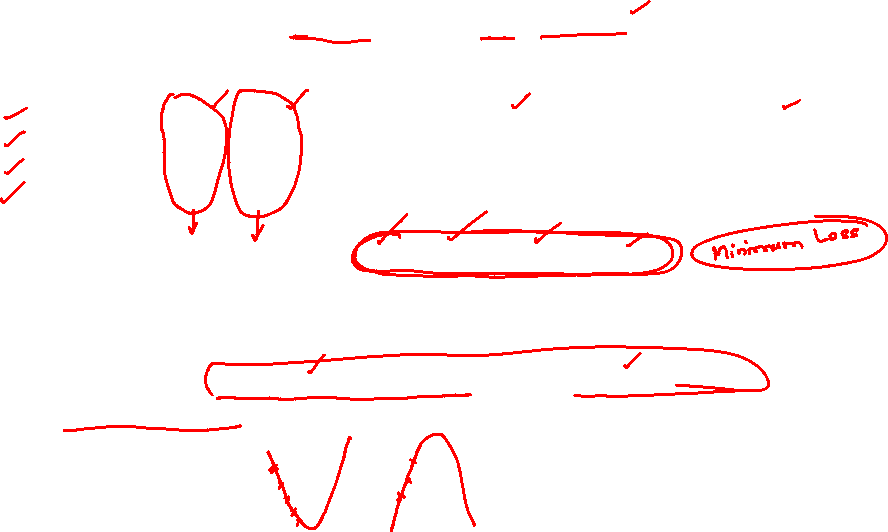 Minimum Loss